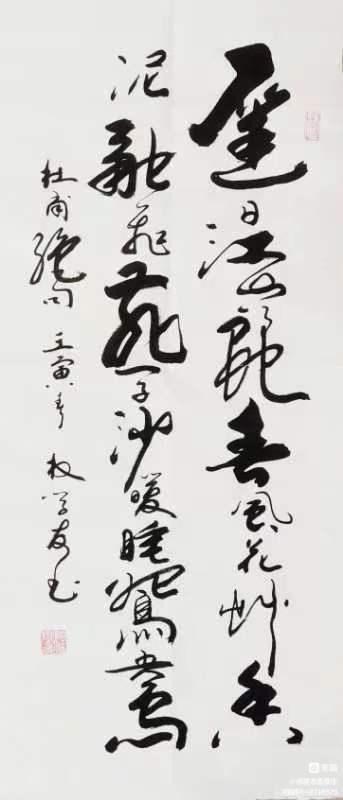 遲日江山麗春風花艸香
泥融飛燕子沙暖睡鴛鴦
杜甫絕句 壬寅春 学友书